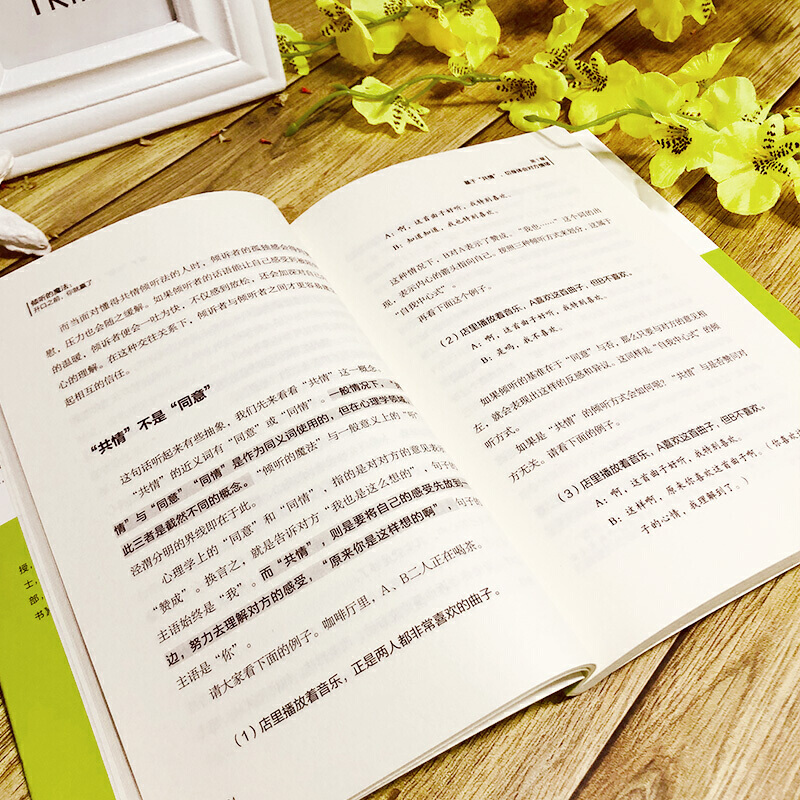 倾听的魔法：
开口之前，你就赢了
而当面对懂得共情倾听法的人时，倾诉者的孤独感会
，压力也会随之缓解。如果倾听者的话语能让自己感受到
的温暖，倾诉者便会一吐为快，不仅感到放松，还会加深对自
心的理解。在这种交往关系下，倾诉者与倾听者之间才更容易
起相互的信任。
“共情”不是“同意”
这句话听起来有些抽象，我们先来看看“共情”这一概念。
“共情”的近义词有“同意”或“同情”。一般情况下，“共
情”与“同意”“同情”是作为同义词使用的，但在心理学领域
此三者是截然不同的概念。“倾听的魔法”与一般意义上的“听”
泾渭分明的界线即在于此。
心理学上的“同意”和“同情”，指的是对对方的意见表
“赞成”。换言之，就是告诉对方“我也是这么想的”，句子的
主语始终是“我”。而“共情”，则是要将自己的感受先放到一
边，努力去理解对方的感受，“原来你是这样想的啊”，句子
主语是“你”。
请大家看下面的例子。咖啡厅里，A、B二人正在喝茶。
（1）店里播放着音乐，正是两人都非常喜欢的曲子。
基于“共情”，切身体会对方情绪
A：啊，这首曲子好听，我特别喜欢。
B：知道知道，我也特别喜欢。
这种情况下，B对A表示了赞成。“我也……”这个词的出
现，表示内心的箭头指向自己，按照三种倾听方式来划分，这属于
“自我中心式”。
再看下面这个例子。
（2）店里播放着音乐，A喜欢这首曲子，但B不喜欢。
A：啊，这首曲子好听，我特别喜欢。
B：是吗，我不喜欢。
如果倾听的基准在于“同意”与否，那么只要与对方的意见相
左，就会表现出这样的反感和异议。这同样是“自我中心式”的倾
听方式。
如果是“共情”的倾听方式会如何呢？“共情”与是否赞同对
方无关。请看下面的例子。
（3）店里播放着音乐，A喜欢这首曲子，但B不喜欢。
A：啊，这首曲子好听，我特别喜欢。
B：这样啊，原来你喜欢这首曲子啊。（你喜欢
子的心情，我理解到了。）
授
士，
郎
书